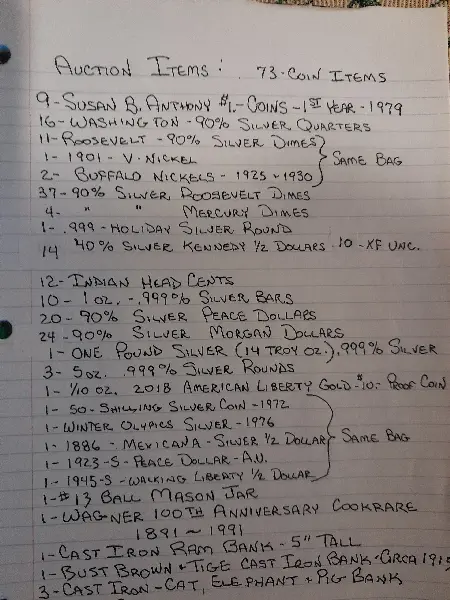 AUCTION ITEMS: 73-COIN ITEMS
9-SUSAN B. ANTHONY $1.-COINS-1ST YEAR-1979
16-WASHINGTON-90% SILVER QUARTERS
11-ROOSEVELT-90% SILVER DIMES
1-1901-V-NICKEL SAME BAG
2-BUFFALO NICKELS-1925 & 1930
37-90% SILVER ROOSEVELT DIMES
4- " " MERCURY DIMES
1-.999-HOLIDAY SILVER ROUND
14 40% SILVER KENNEDY 1/2 DOLLARS-10-XF UNC.
12-INDIAN HEAD CENTS
10-1 OZ.-.999% SILVER BARS
20-90% SILVER PEACE DOLLARS
24-90% SILVER MORGAN DOLLARS
1-ONE POUND SILVER (14 TROY OZ.) .999% SILVER
3-5 OZ. .999% SILVER ROUNDS
1-1/10 OZ. 2018 AMERICAN LIBERTY GOLD-$10-PROOF COIN
1-50-SHILLING SILVER COIN-1972
1-WINTER OLYPICS SILVER-1976
1-1886-MEXICANA-SILVER 1/2 DOLLAR SAME BAG
1-1923-S-PEACE DOLLAR-A.U.
1-1945-S-WALKING LIBERTY 1/2 DOLLAR
1-#13 BALL MASON JAR
1-WAGNER 100TH ANNIVERSARY COOKRARE
1891~1991
1-CAST IRON RAM BANK-5" TALL
1-BUST BROWN & TIGE CAST IRON BANK-CIRCA 1915
3-CAST IRON-CAT, ELEPHANT & PIG BANK